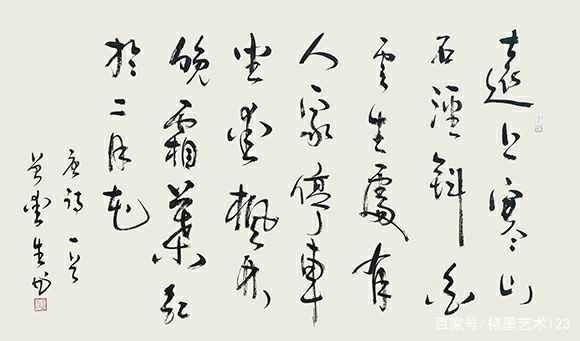 遠上寒山
石徑斜白
雲生處有
人家停車
坐愛楓林
晚霜葉紅
於二月花
唐詩一首
生书
百家号/楮墨艺术123